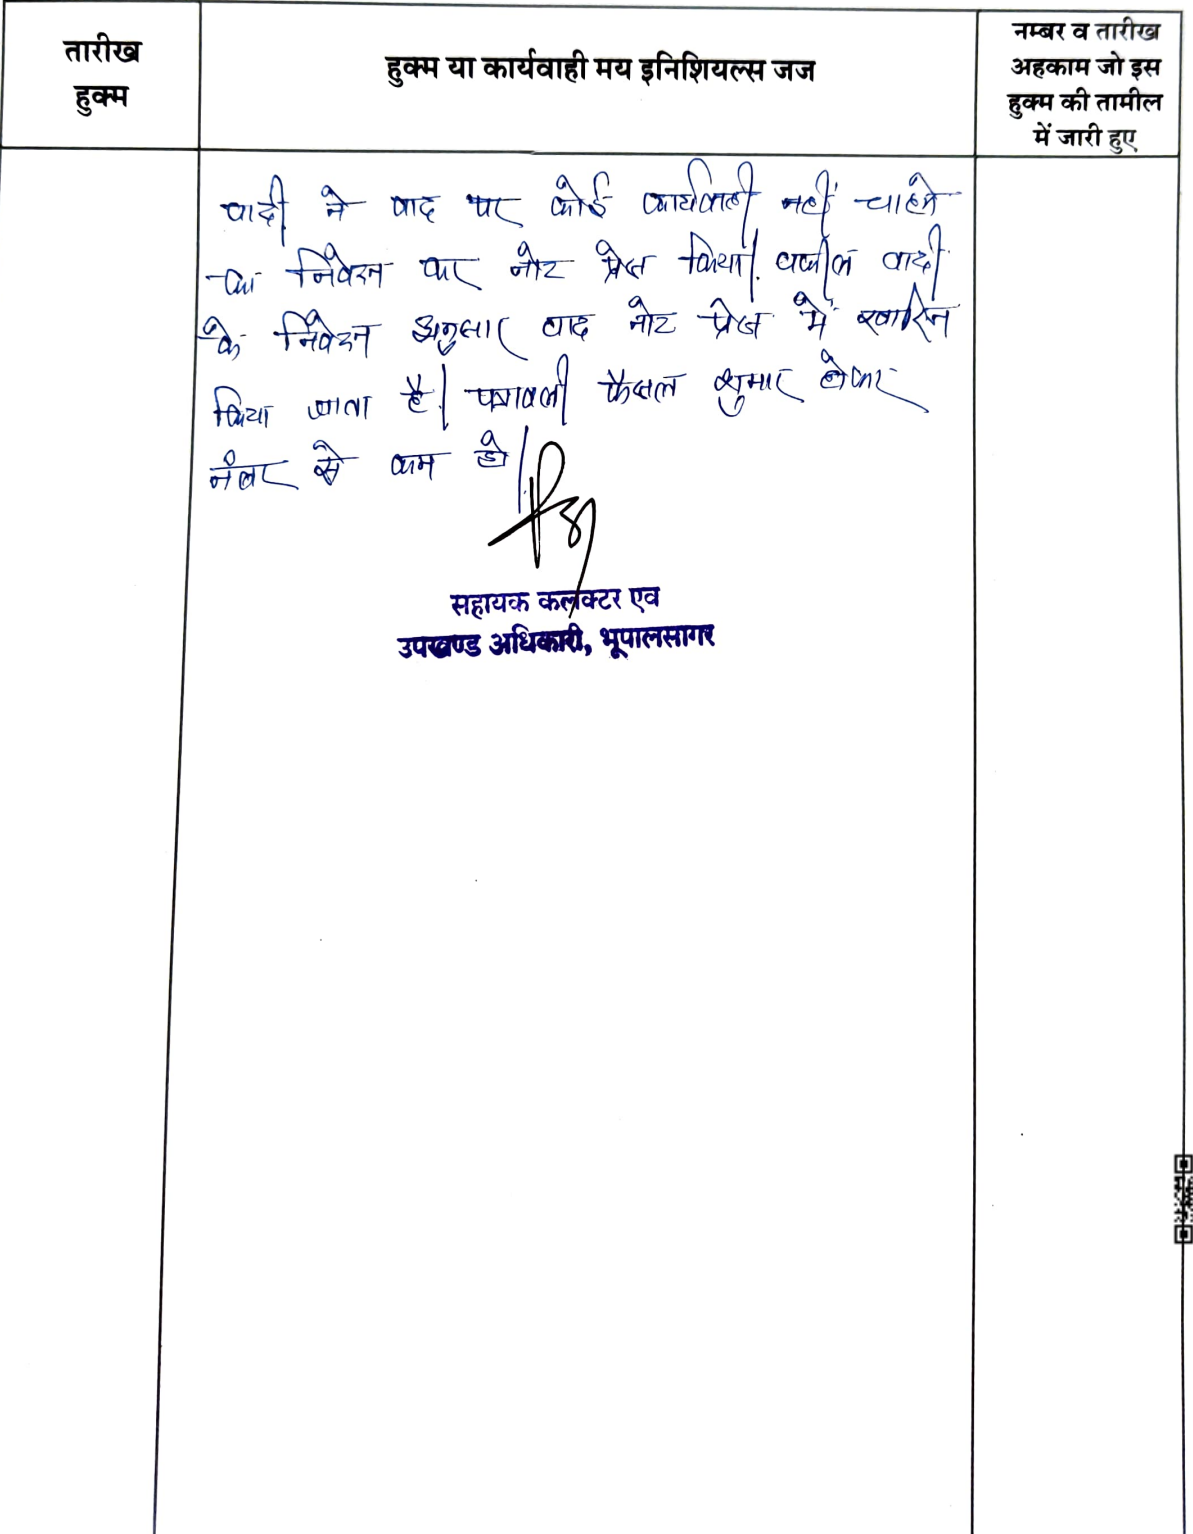 तारीख
हुक्म
हुक्म या कार्यवाही मय इनिशियल्स जज
नम्बर व तारीख
अहकाम जो इस
हुक्म की तामील
में जारी हुए
वादी ने वाद पर कोई कार्यवाही नहीं चाहने
का निवेदन कर नोट प्रेस किया। वकील वादी
के निवेदन अनुसार वाद नोट प्रेस में खारिज
किया जाता है। पत्रावली फैसल शुमार होकर
नंबर से कम हो।
सहायक कलक्टर एव
उपखण्ड अधिकारी, भूपालसागर